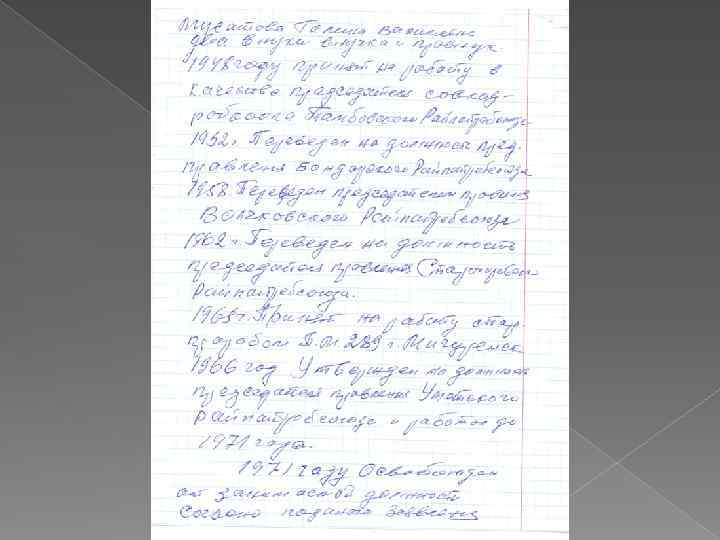 Мусатова Галина Васильевн
два внука внучка и правнук
1948 году принят на работу в
качестве председателя
рабкоопа Тамбовского Райпотребсоюза
1952г. Переведен на должность пред.
правления Бондарского Райпотребсоюза
1958 Переведен председателем правления
Волчковского Райпотребсоюза
1962 г Переведен на должность
председателя правления
Райпотребсоюза.
1963г. Принят на работу стар.
прорабом П.М 289 г. Мичуринск
1966 год Утвержден на должность
председателя правления Умётского
Райпотребсоюза и работал до
1971 года.
1971 году Освобожден
от занимаемой должност
согласно поданого заявления